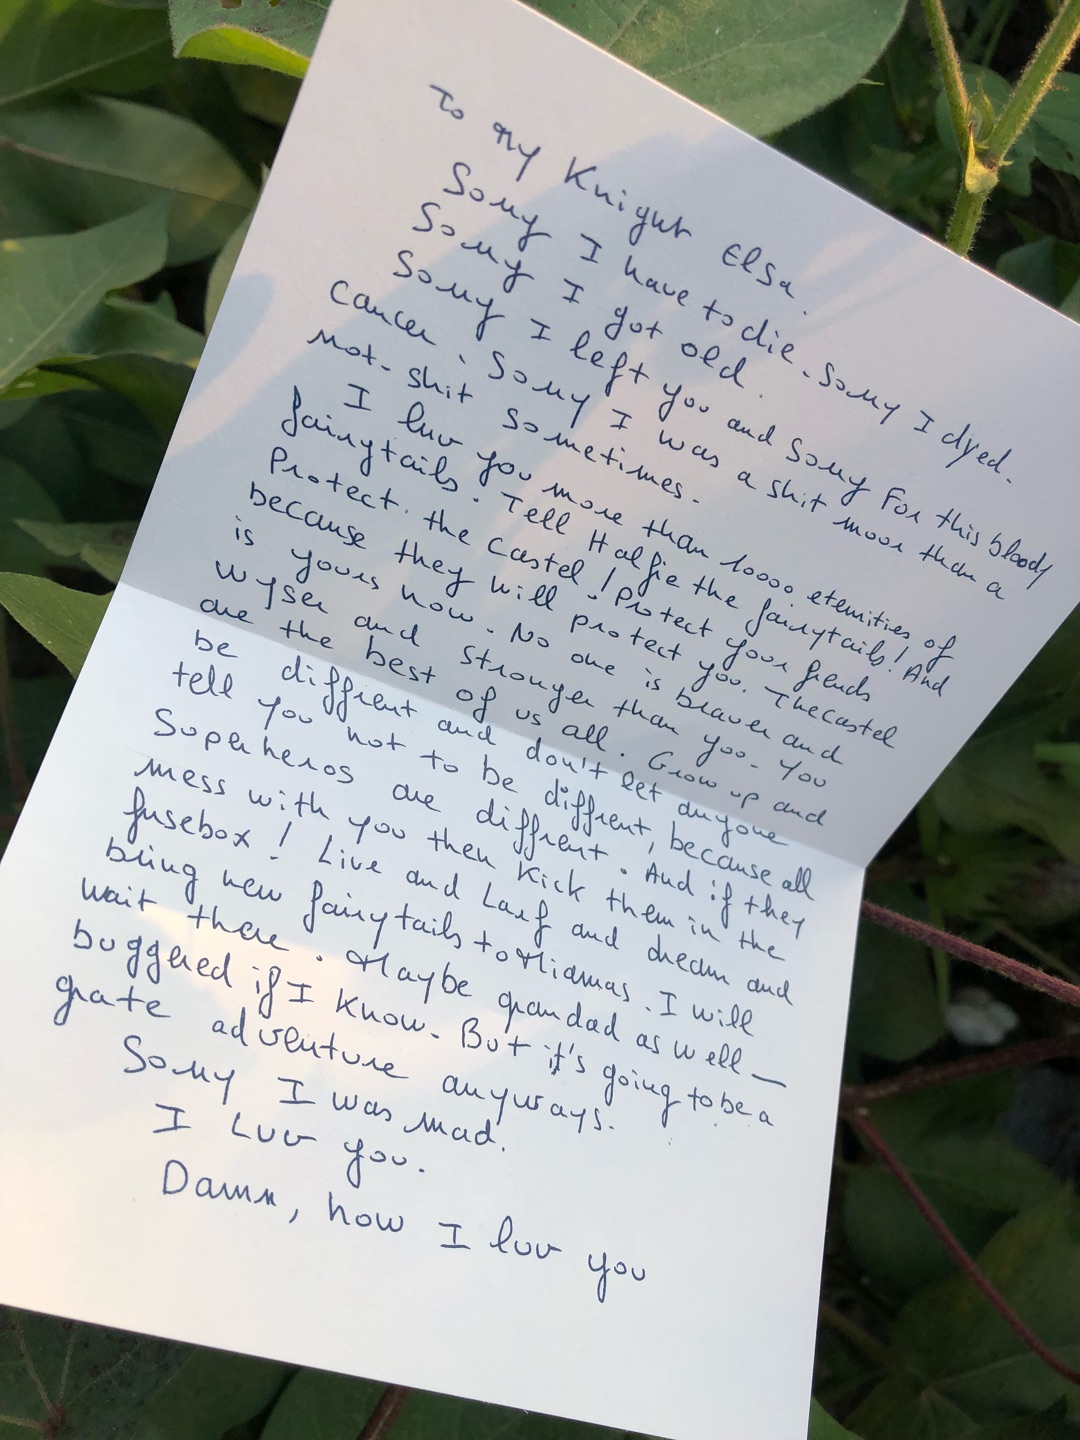 To My Knight Elsa.
Sorry I have to die. Sorry I dyed.
Sorry I got old.
Sorry I left you and Sorry For this bloody
cancer. Sorry I was a shit moor than a
not-shit sometimes.
I luv you more than 10000 eternities of
fairytails. Tell Halfie the fairytails! And
Protect the castel! Protect your friends
because they will protect you. The castel
is yours now. No one is braver and
wyser and stronger than you. You
are the best of us all. Grow up and
be diffrent and don't let anyone
tell you not to be diffrent, because all
Superheros are diffrent. And if they
mess with you then kick them in the
fusebox! Live and Larf and dream and
bring new fairytails to Miamas. I will
wait there. Maybe grandad as well —
buggered if I know. But it's going to be a
grate adventure anyways.
Sorry I was mad.
I Luv you.
Damn, how I luv you